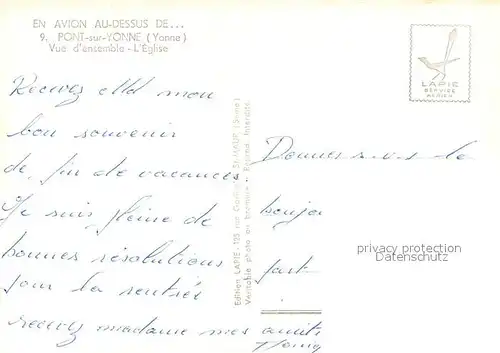 EN AVION AU-DESSUS DE...
9. PONT-sur-YONNE (Yonne)
Vue d'ensemble - L'Église
LAPIE
SERVICE
AÉRIEN
Recevez mon
bon souvenir
de fin de vacances.
Je suis pleine de
bonnes résolutions
pour la rentrée
recevez madame mes
Donnez le
bonjo
part
Edition LAPIE - 125, rue St-MAUR (Seine)
Véritable photo au bromure - Reprod. Interdite
privacy protection
Datenschutz